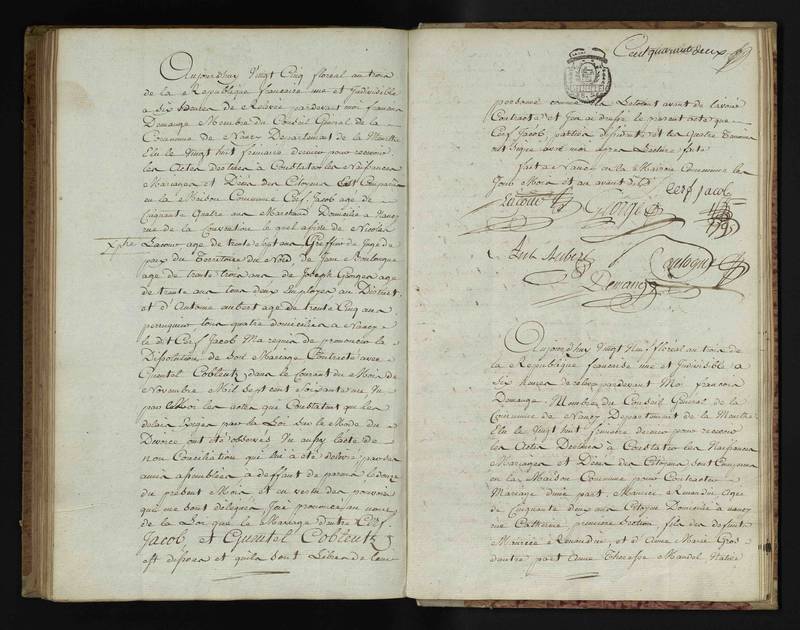 Aujourdhuy Vingt Cinq floréal an trois
de la République francoise une et Indivisible
a Six heures de Relevée pardevant moi francois
Domange Membre du Conseil Général de la
Commune de Nancy Departement de la Meurthe
Elu le Vingt huit frimaire dernier pour recevoir
les Actes destinés à Constater les Naissances
Mariages et Décès des Citoyens Est Comparu
en la Maison Commune Cerf Jacob age de
Cinquante Quatre ans Marchand Domicilié a Nancy
rue de la Convention le quel assisté de Nicolas
Lacour age de trente Sept ans Greffier du Juge de
paix du Territoire du Nord de Jean Boulogne
age de trente trois ans de Joseph Georges age
de trente ans tous deux Employés au District
et d'Antoine aubert age de Trente Cinq ans
perruquier tous quatre domiciliés a Nancy
le dit Cerf Jacob Ma requis de prononcer la
Dissolution de Son Mariage Contracté avec
Guentel Coblentz dans le Courant du Mois de
Novembre Mil Sept cent Soixante
par les actes que Constatent que les
delais Exigés par la Loi Sur le Mode du
Divorce ont été observés Vu aussy lacte de
non Conciliation qui lui a été délivré par des
amis assemblés a deffaut de parens le douze
du présent Mois et en vertu des pouvoirs
qui me sont délégués J'ai prononcé au nom
de la Loi que le Mariage d'entre Cerf
Jacob et Guentel Coblentz
est dissous et quils sont Libres de leur
Cent quarante deux
personne comme ils Letoient avant de lavoir
Contracté et J'en ai dressé le présent acte que
Cerf Jacob partie et les Quatre Témoins
ont Signé avec moi après Lecture faite
fait a Nancy en la Maison Commune les
Jour Mois et an avant dits
Cerf Jacob
Lacour
Georges
1795
Ant Aubert
Boulogne
Domange
Aujourdhuy Vingt Huit floréal an trois de
la République francoise une et Indivisible a
Six heures de relevée pardevant Moi francois
Domange Membre du Conseil Général de la
Commune de Nancy Departement de la Meurthe
Elu le Vingt huit frimaire dernier pour recevoir
les Actes Destinés à Constater les Naissances
Mariages et Décès des Citoyens Sont Comparus
en la Maison Commune pour Contracter
Mariage d'une part Maurice Renaudin Agé
de Cinquante deux ans Citoyen Domicilié a nancy
rue Catherine premiere Section, fils des defunts
Maurice Renaudin, et d'Anne Marie Gros
dautre part Anne Therese Mandel Native